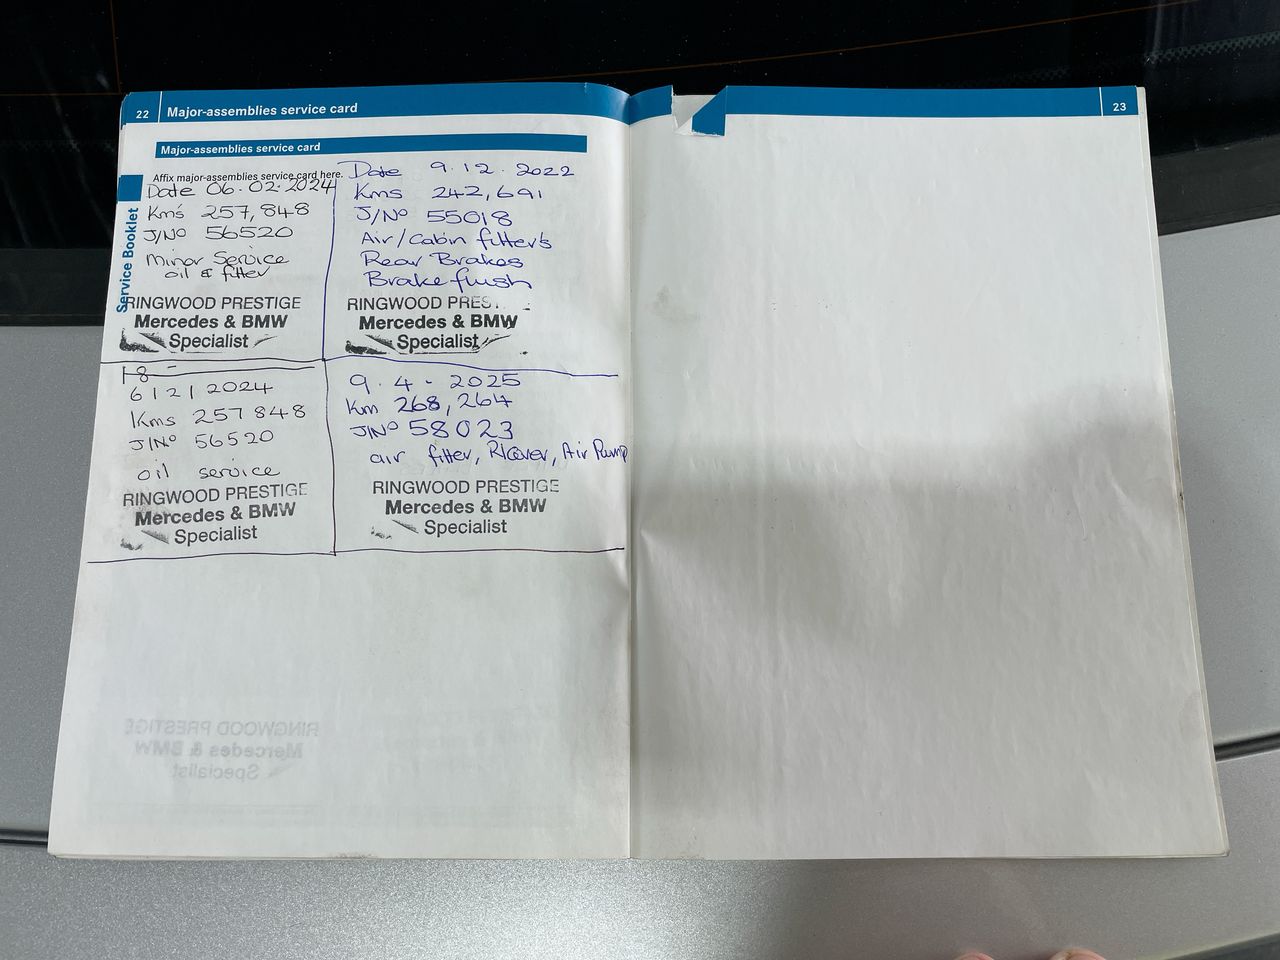 22 Major-assemblies service card
Major-assemblies service card
Affix major-assemblies service card here.
Service Booklet
Date 06.02.2024
Kms 257,848
J/No 56520
Minor Service
oil & filter
RINGWOOD PRESTIGE
Mercedes & BMW
Specialist
Date 9.12.2022
Kms 242,691
J/No 55018
Air/Cabin filter's
Rear Brakes
Brake flush
RINGWOOD PRES
Mercedes & BMW
Specialist
18
6/2/2024
Kms 257848
J/No 56520
oil service
RINGWOOD PRESTIGE
Mercedes & BMW
Specialist
9.4-2025
Km 268,264
J/No 58023
air filter, R/Cover, Air Pump
RINGWOOD PRESTIGE
Mercedes & BMW
Specialist
RINGWOOD PRESTIGE
Mercedes & BMW
Specialist
23